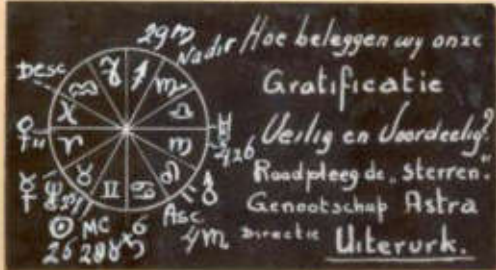 29 ♏
Nadir
Desc
Asc
4 ♏
MC
Hoe beleggen wy onze
Gratificatie
Veilig en Voordeelig?
Raadpleeg de „sterren."
Genootschap Astra
Directie Uiterurk.